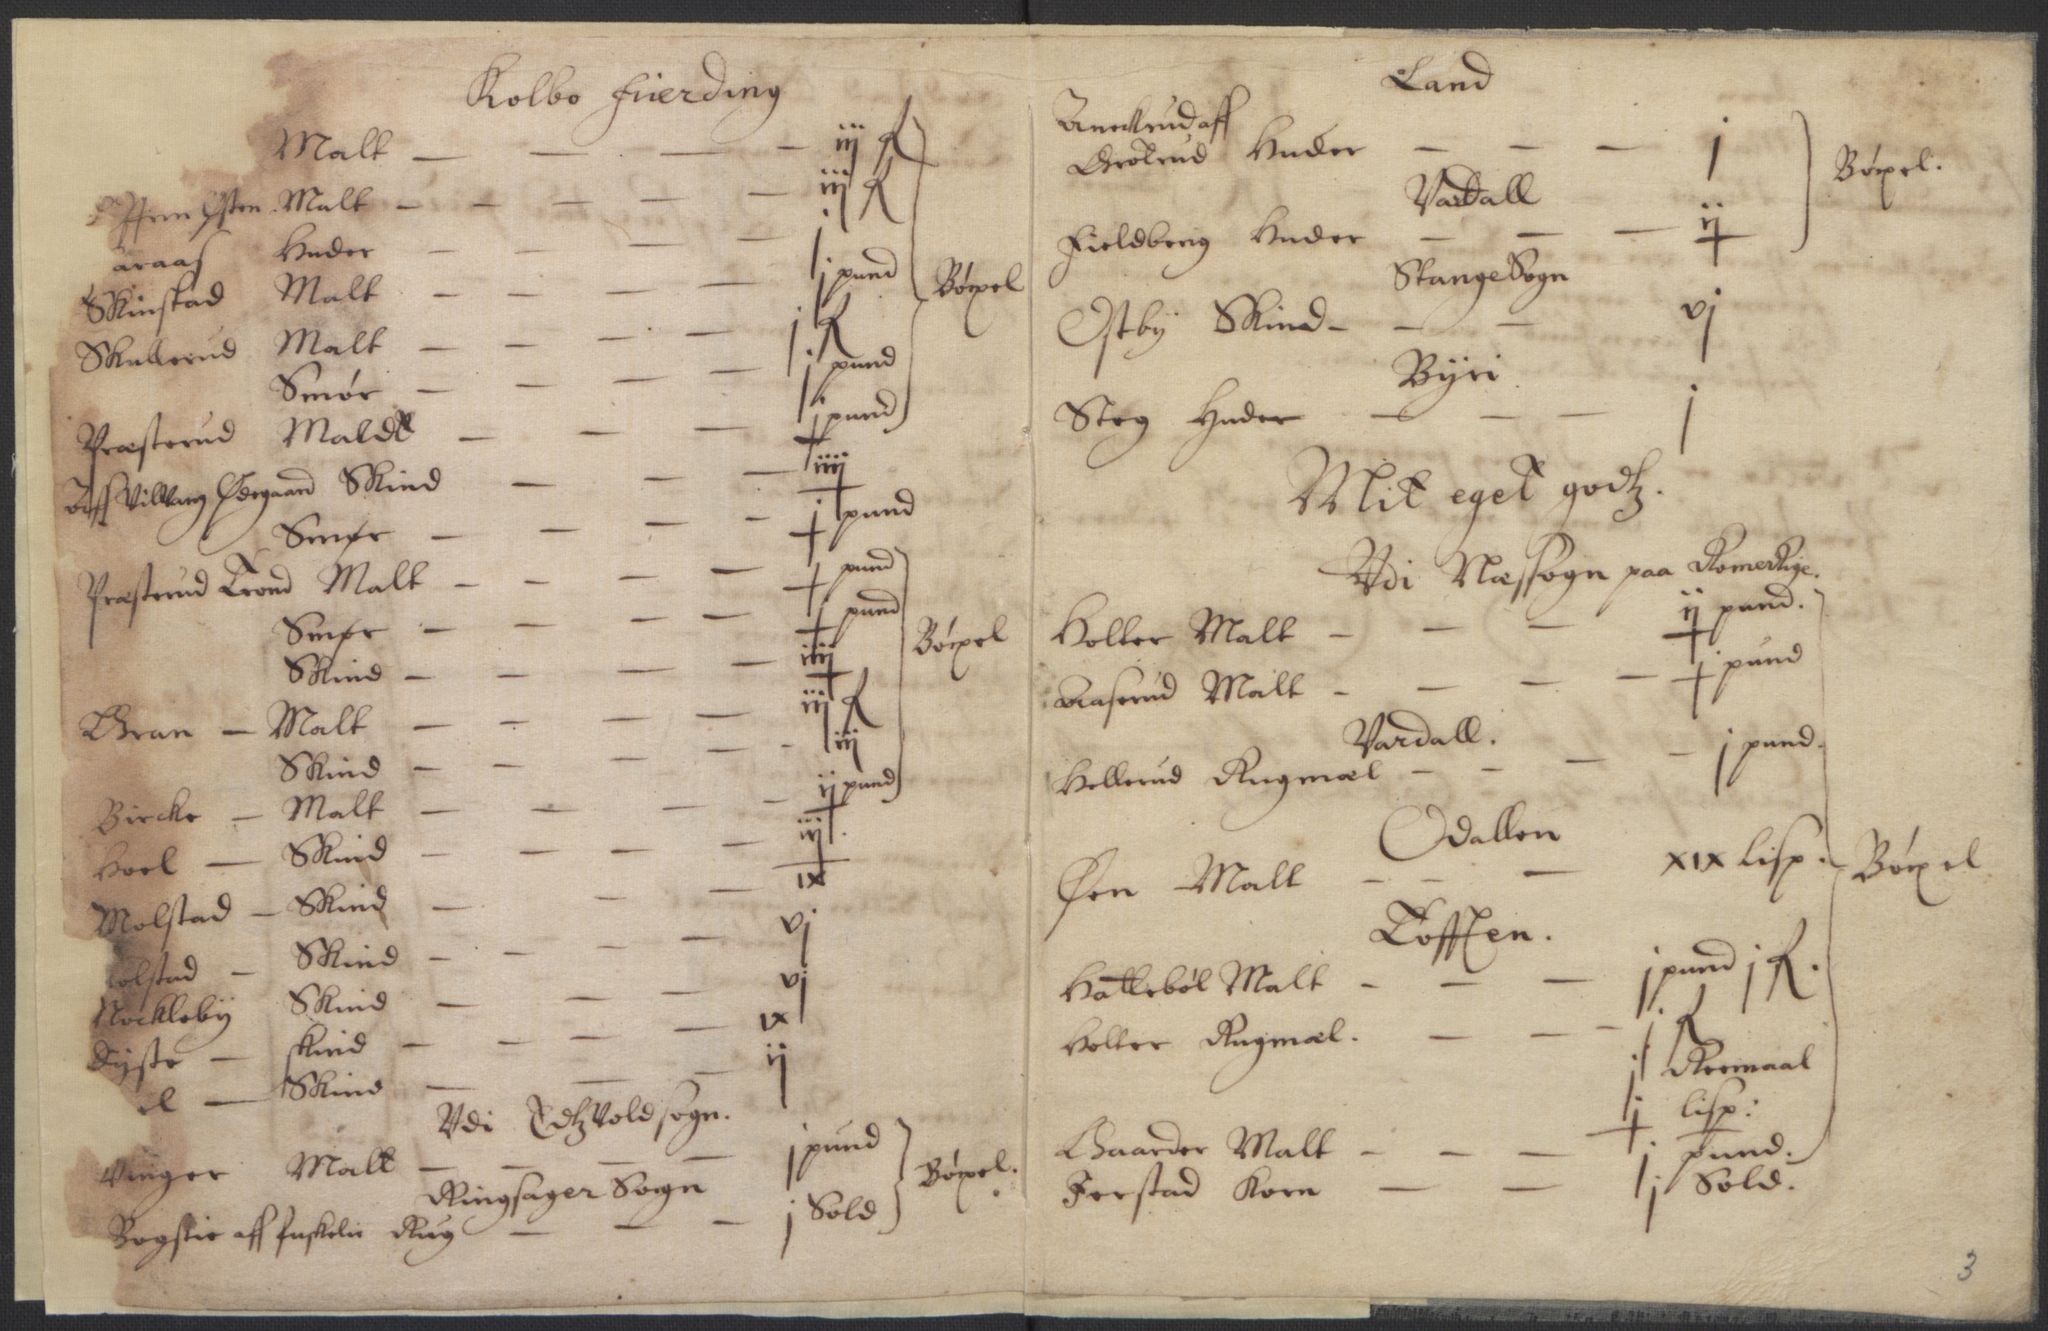 Kolbo fierding
Malt — — — — iij R
Østen Malt — — — — iij R
araas Huder — — — — j
Skinstad Malt — — — — j pund
Skullerud Malt — — — — j R
Smør — — — — j pund
Præsterud Maldt — — — — j pund
Aff Ødegaard Skind — — — iiij
Smør — — — — j pund
Præsterud Trond Malt — — — — j pund
Smør — — — — j pund
Skind — — — — iiij
Bøxel
Gran — Malt — — — — iij R
Skind — — — — iij
Bircke — Malt — — — — ij pund
Bøxel
Hoel — Skind — — — — iij
Molstad — Skind — — — ix
olstad — Skind — — — — vj
Nockleby Skind — — — vj
dyste — skind — — — — ix
el — Skind — — — ij
Vdi Edtzvold sogn.
Vinger Malt — — — — j pund
Ringsager Sogn
Bogstie aff Rug — — — j Sold
Bøxel.
Land
aff
Grolrud Huder — — — j
Vardall
Fieldberg Huder — — — ij
Bøxel.
Stange Sogn
Ostby Skind — — — vj
Byri
Steg Huder — — — j
Mit eget godtz.
Vdi Næssogn paa Romerkige.
Holter Malt — — — ij pund.
Aaserud Malt — — — — j pund
Vardall.
Hellerud Rugmæl — — — — j pund.
Odallen
Øen Malt — — — xix lisp.
Tofften.
Hattebøl Malt — — — j pund j R.
Holter Rugmæl. — — — j R
j Kremaal
j lisp:
Gaarder Malt — — — j pund.
Jerstad Korn — — j Sold.
Bøxel
3